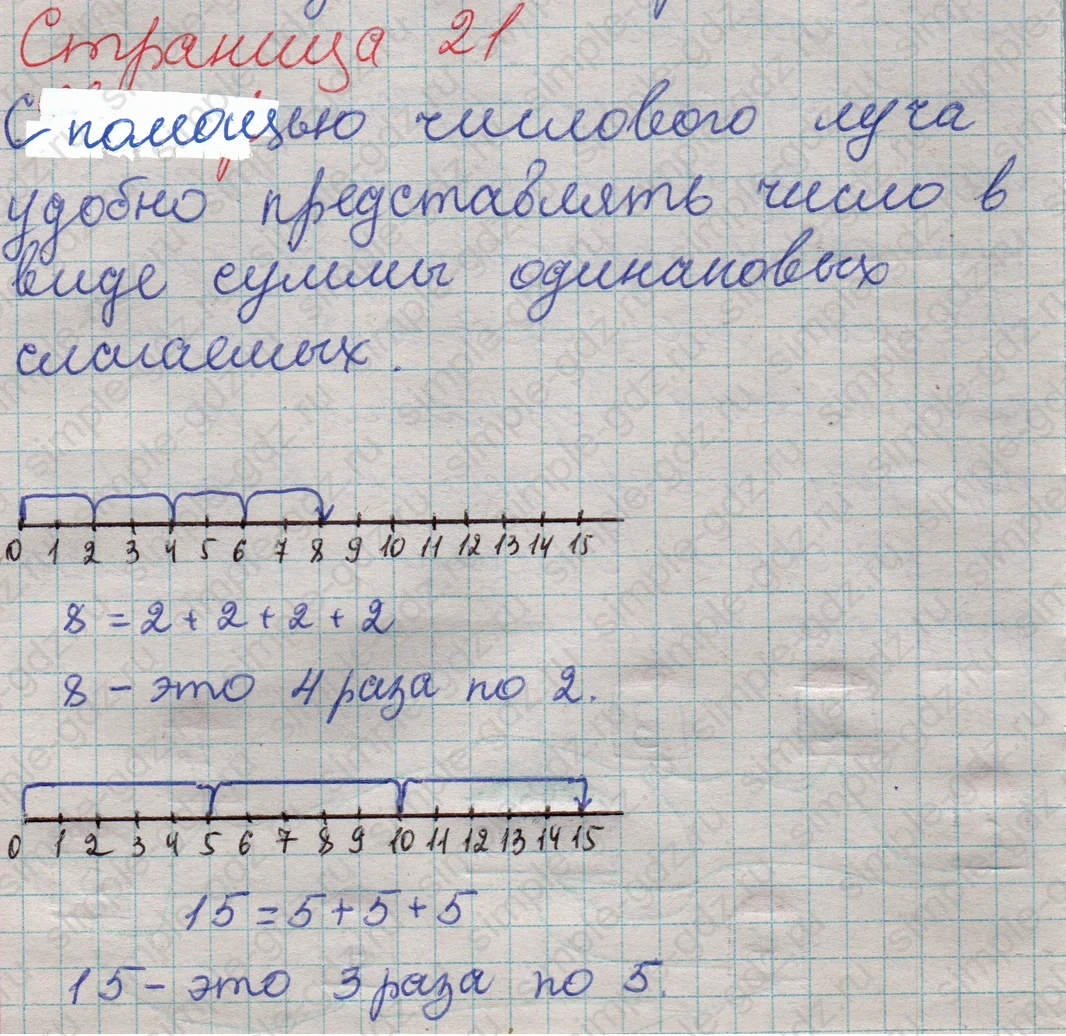 Страница 21
С помощью числового луча
удобно представлять число в
виде суммы одинаковых
слагаемых.
0 1 2 3 4 5 6 7 8 9 10 11 12 13 14 15
8 = 2 + 2 + 2 + 2
8 - это 4 раза по 2.
0 1 2 3 4 5 6 7 8 9 10 11 12 13 14 15
15 = 5 + 5 + 5
15 - это 3 раза по 5.
simple-gdz.ru